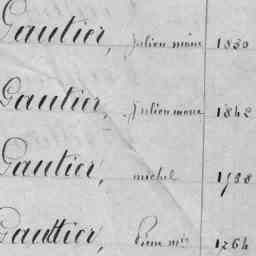 Gautier, Julien marie 1830
Gautier, Julien marie 1842
Gautier, michel 1788
Gauttier, Pierre mie 1764